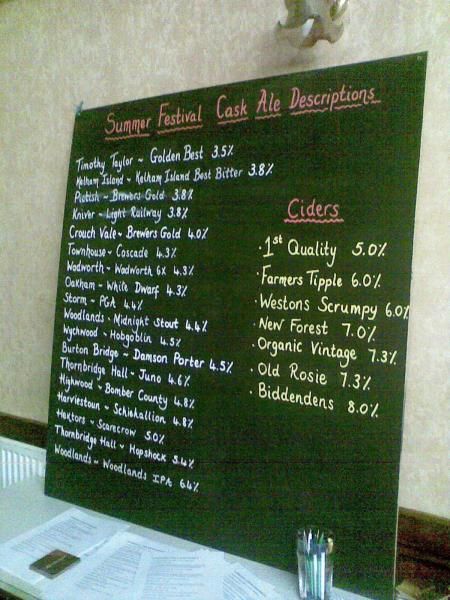 Summer Festival Cask Ale Descriptions
Timothy Taylor ~ Golden Best 3.5%
Kelham Island ~ Kelham Island Best Bitter 3.8%
Pictish ~ Brewers Gold 3.8%
Kniver ~ Light Railway 3.8%
Crouch Vale ~ Brewers Gold 4.0%
Townhouse ~ Cascade 4.3%
Wadworth ~ Wadworth 6X 4.3%
Oakham ~ White Dwarf 4.3%
Storm ~ PGA 4.4%
Woodlands ~ Midnight Stout 4.4%
Wychwood ~ Hobgoblin 4.5%
Burton Bridge ~ Damson Porter 4.5%
Thornbridge Hall ~ Juno 4.6%
Highwood ~ Bomber County 4.8%
Harviestoun ~ Schiehallion 4.8%
Hextors ~ Scarecrow 5.0%
Thornbridge Hall ~ Hopshock 5.4%
Woodlands ~ Woodlands IPA 6.4%
Ciders
· 1st Quality 5.0%
· Farmers Tipple 6.0%
· Westons Scrumpy 6.0%
· New Forest 7.0%
· Organic Vintage 7.3%
· Old Rosie 7.3%
· Biddendens 8.0%